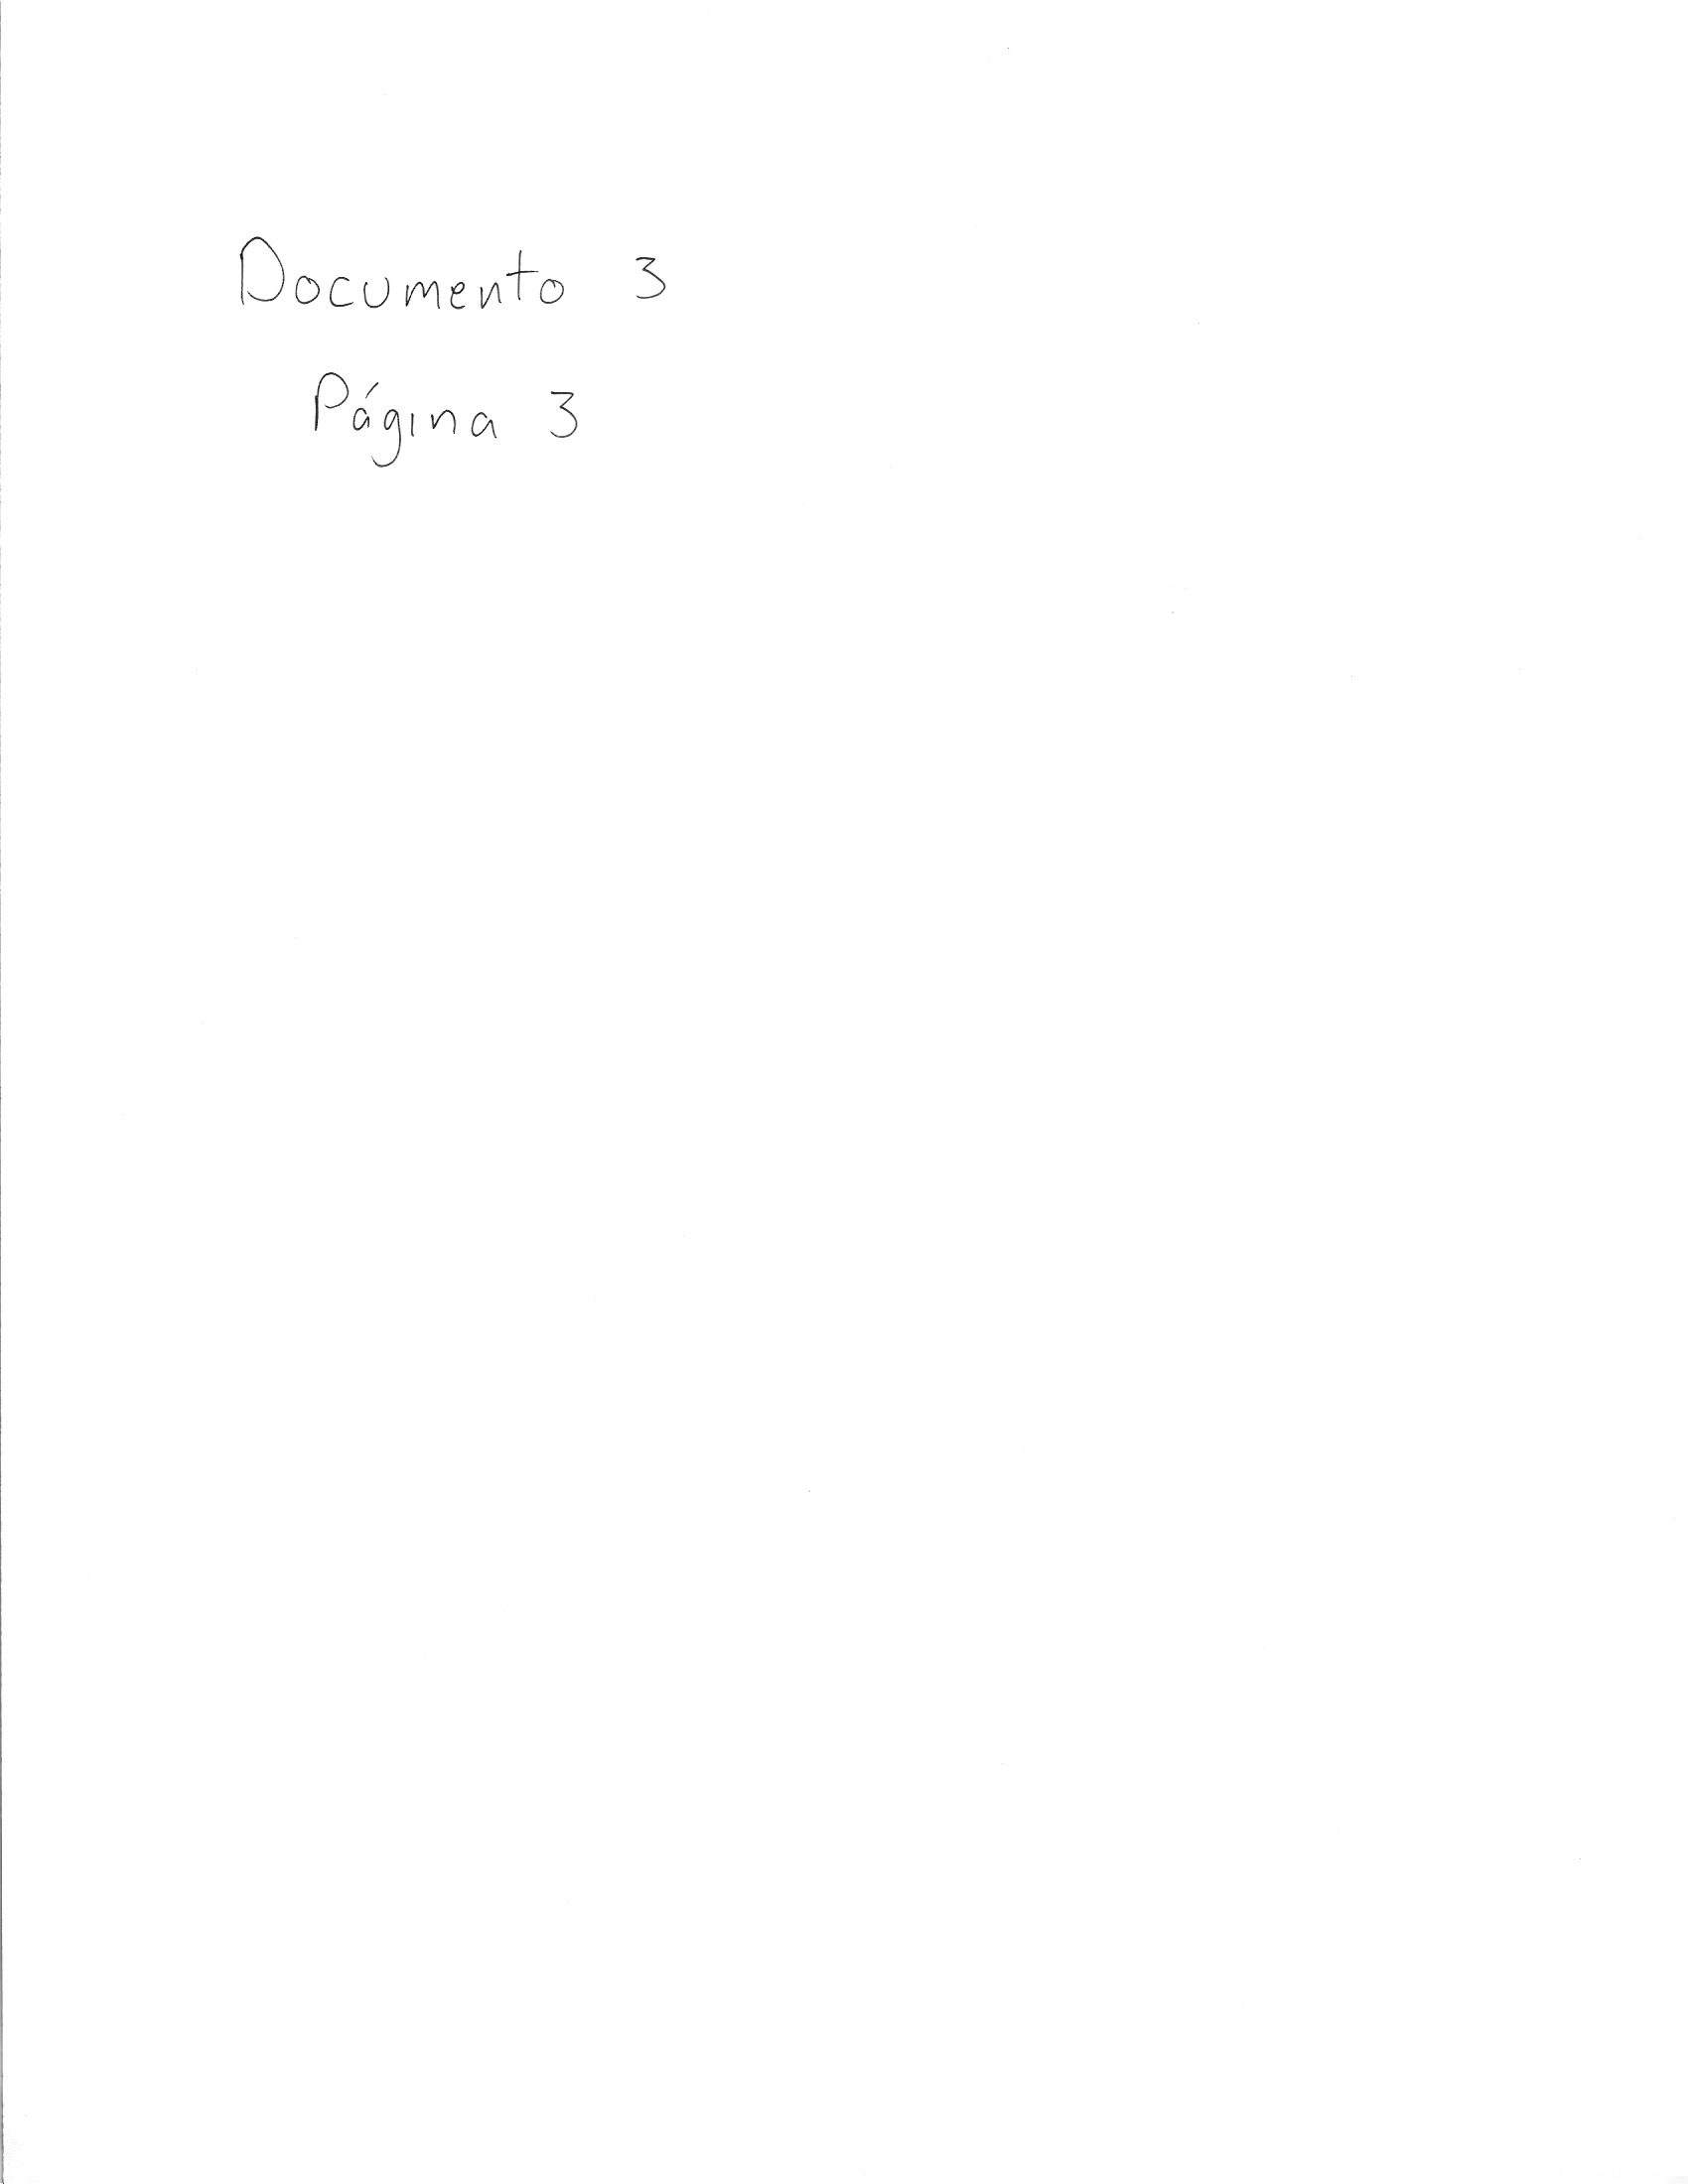 Documento 3
Página 3